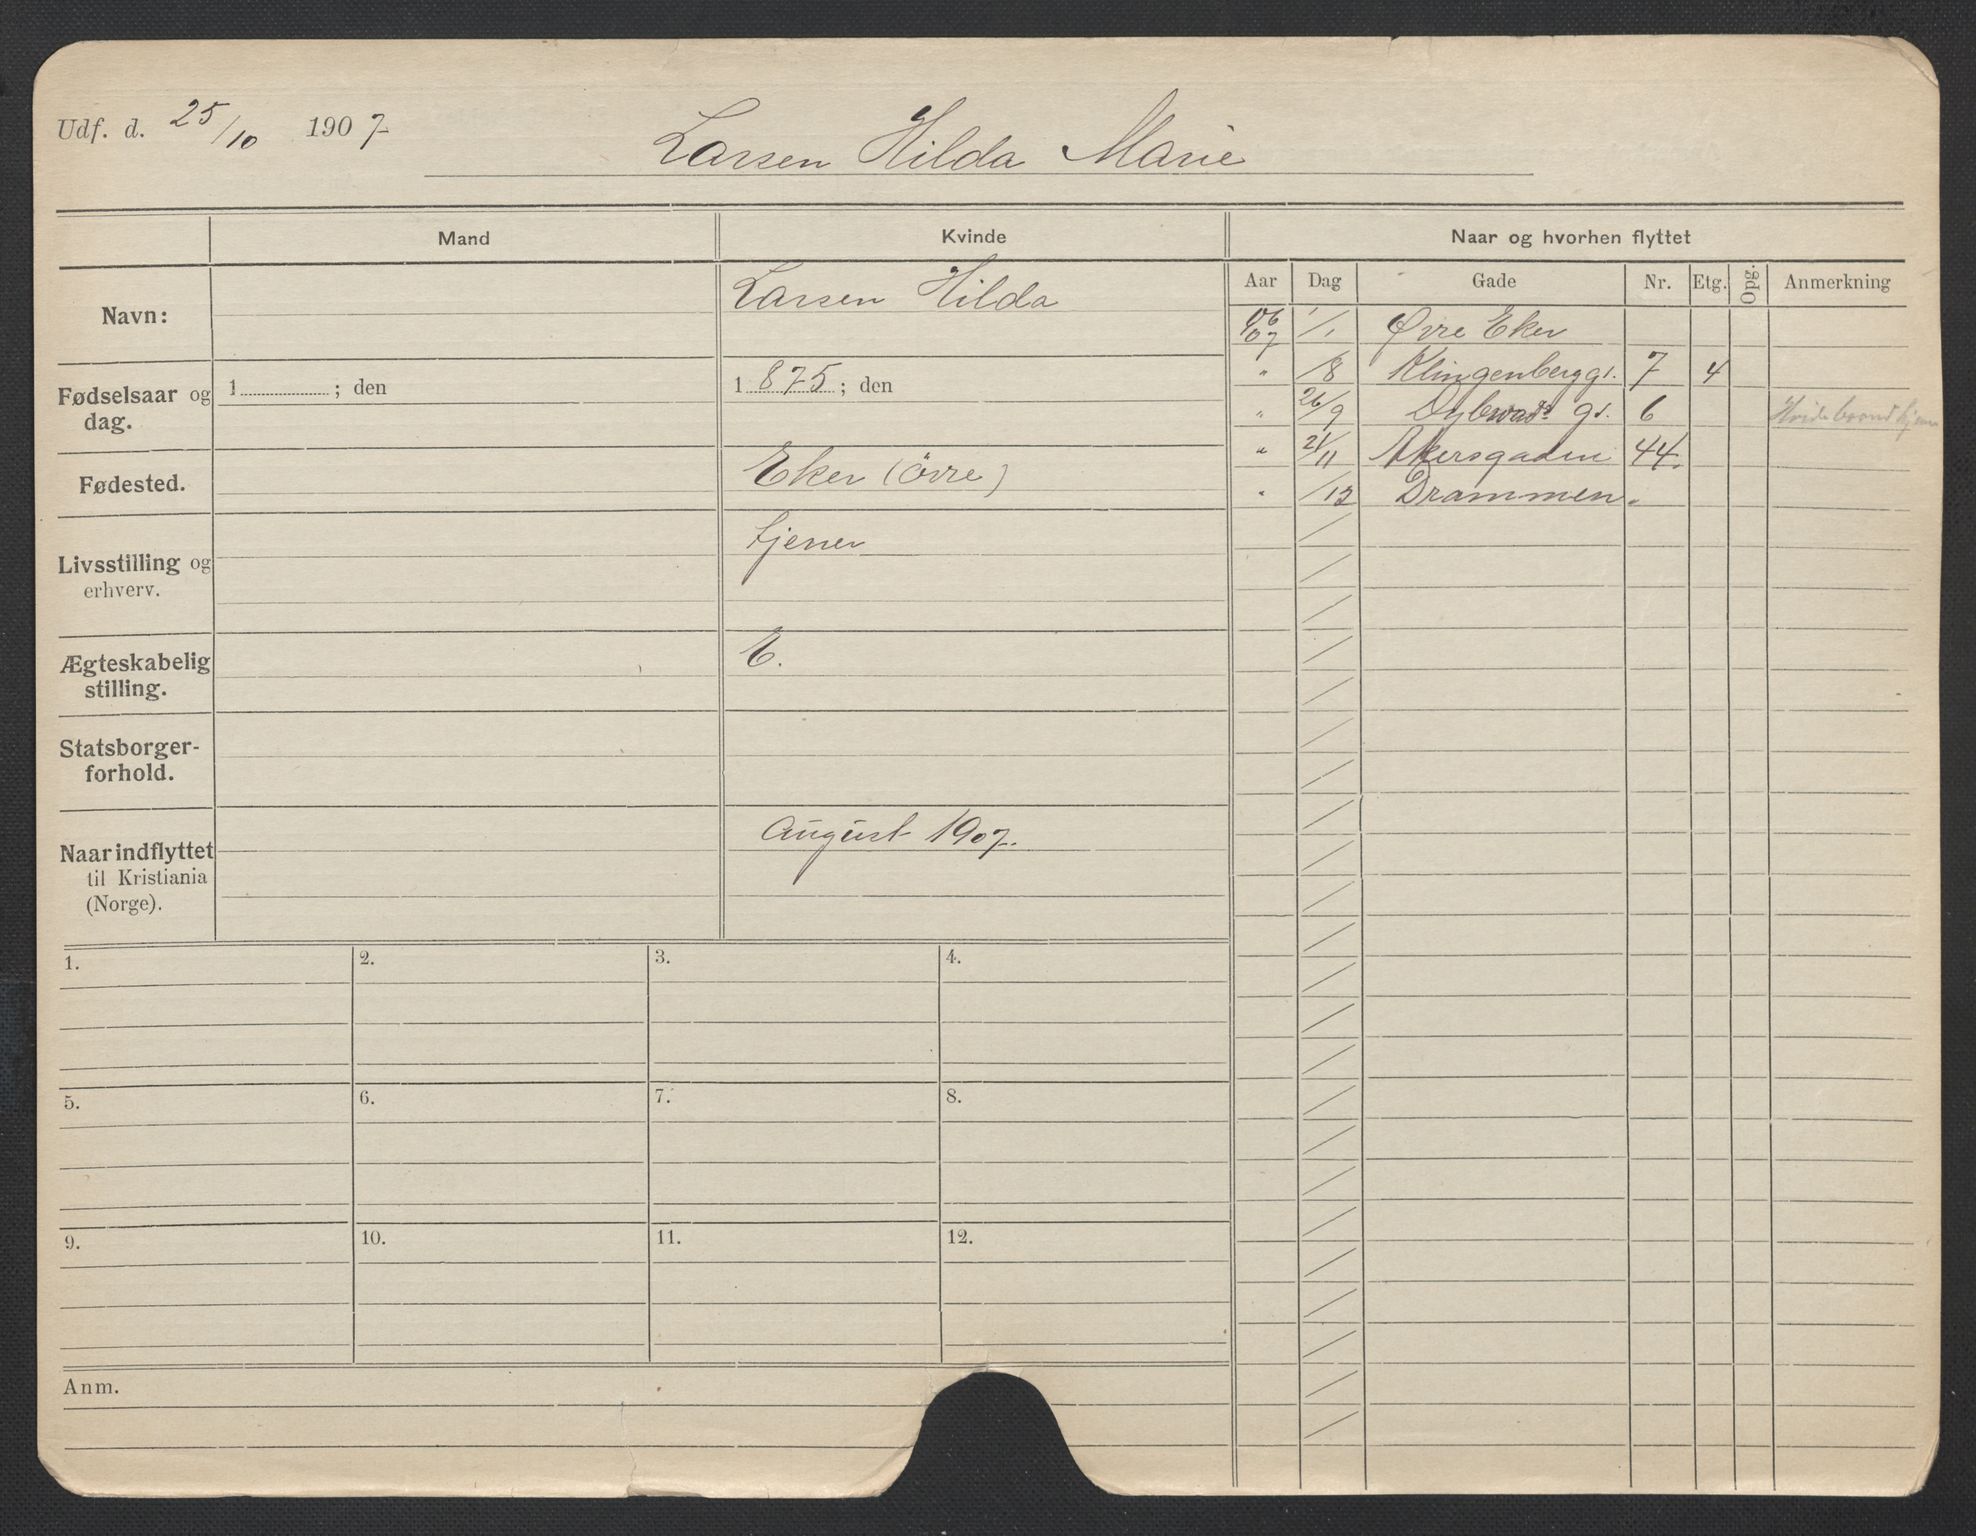 Udf. d. 25/10 1907
Larsen Hilda Marie
Mand
Kvinde
Naar og hvorhen flyttet
Aar Dag Gade Nr. Etg. Opg. Anmerkning
Navn:
Larsen Hilda
Fødselsaar og dag.
1 ; den
1875 ; den
Fødested.
Eker (Övre)
Livsstilling og
erhverv.
tjener
Ægteskabelig
stilling.
E.
Statsborger-
forhold.
Naar indflyttet
til Kristiania
(Norge).
August 1907.
06/07 1/1 Øvre Eker
" /8 Klingenberggt. 7 4
" 26/9 Dybwads gt. 6
" 21/11 Akersgaden 44.
" /12 Drammen.
1. 2. 3. 4.
5. 6. 7. 8.
9. 10. 11. 12.
Anm.